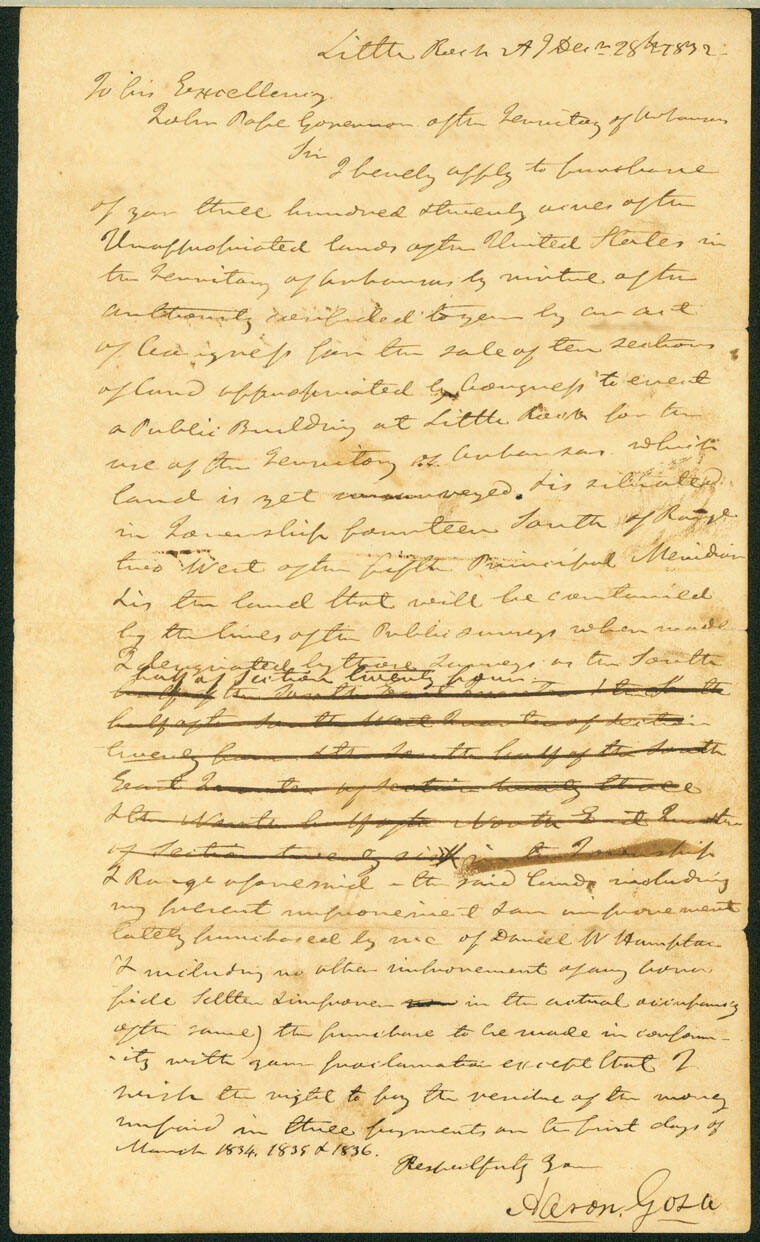 Little Rock A T Decr 28th 1832
To his Excellency
John Pope Governor of the Territory of Arkansas
Sir
I hereby apply to purchase
of you three hundred & twenty acres of the
Unappropriated lands of the United States in
the Territory of Arkansas by virtue of the
authority confided to you by an act
of Congress for the sale of ten sections
of land appropriated by Congress to erect
a Public Building at Little Rock for the
use of the Territory of Arkansas which
land is yet unsurveyed. & is situated
in Township fourteen South of Range
two West of the fifth Principal Meridian
& is the land that will be contained
by the lines of the Public surveys when made
& designated by those Surveys as the South
half of Section twenty four
half of the South East Quarter & the South
half of the South West Quarter of Section
twenty four & the South half of the South
East Quarter of Section twenty three
& the North half of the North East Quarter
of Section twenty six in the Township
& Range aforesaid - the said lands including
my present improvement & an improvement
lately purchased by me of Daniel W Hampton
& including no other improvement of any bona
fide Settler & improver in the actual occupancy
of the same) the purchase to be made in conform-
-ity with your proclamation except that I
wish the right to pay the residue of the money
unpaid in three payments on the first days of
March 1834. 1835 & 1836.
Respectfully you
Aaron. Goza